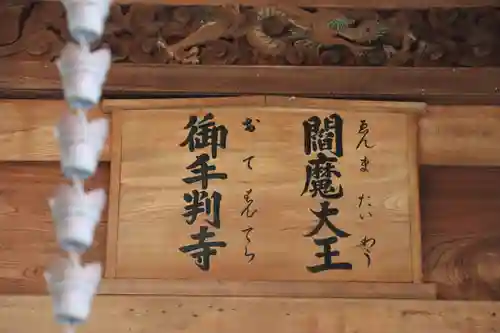 閻魔大王
ゑんま だいわう
御手判寺
おてはんてら